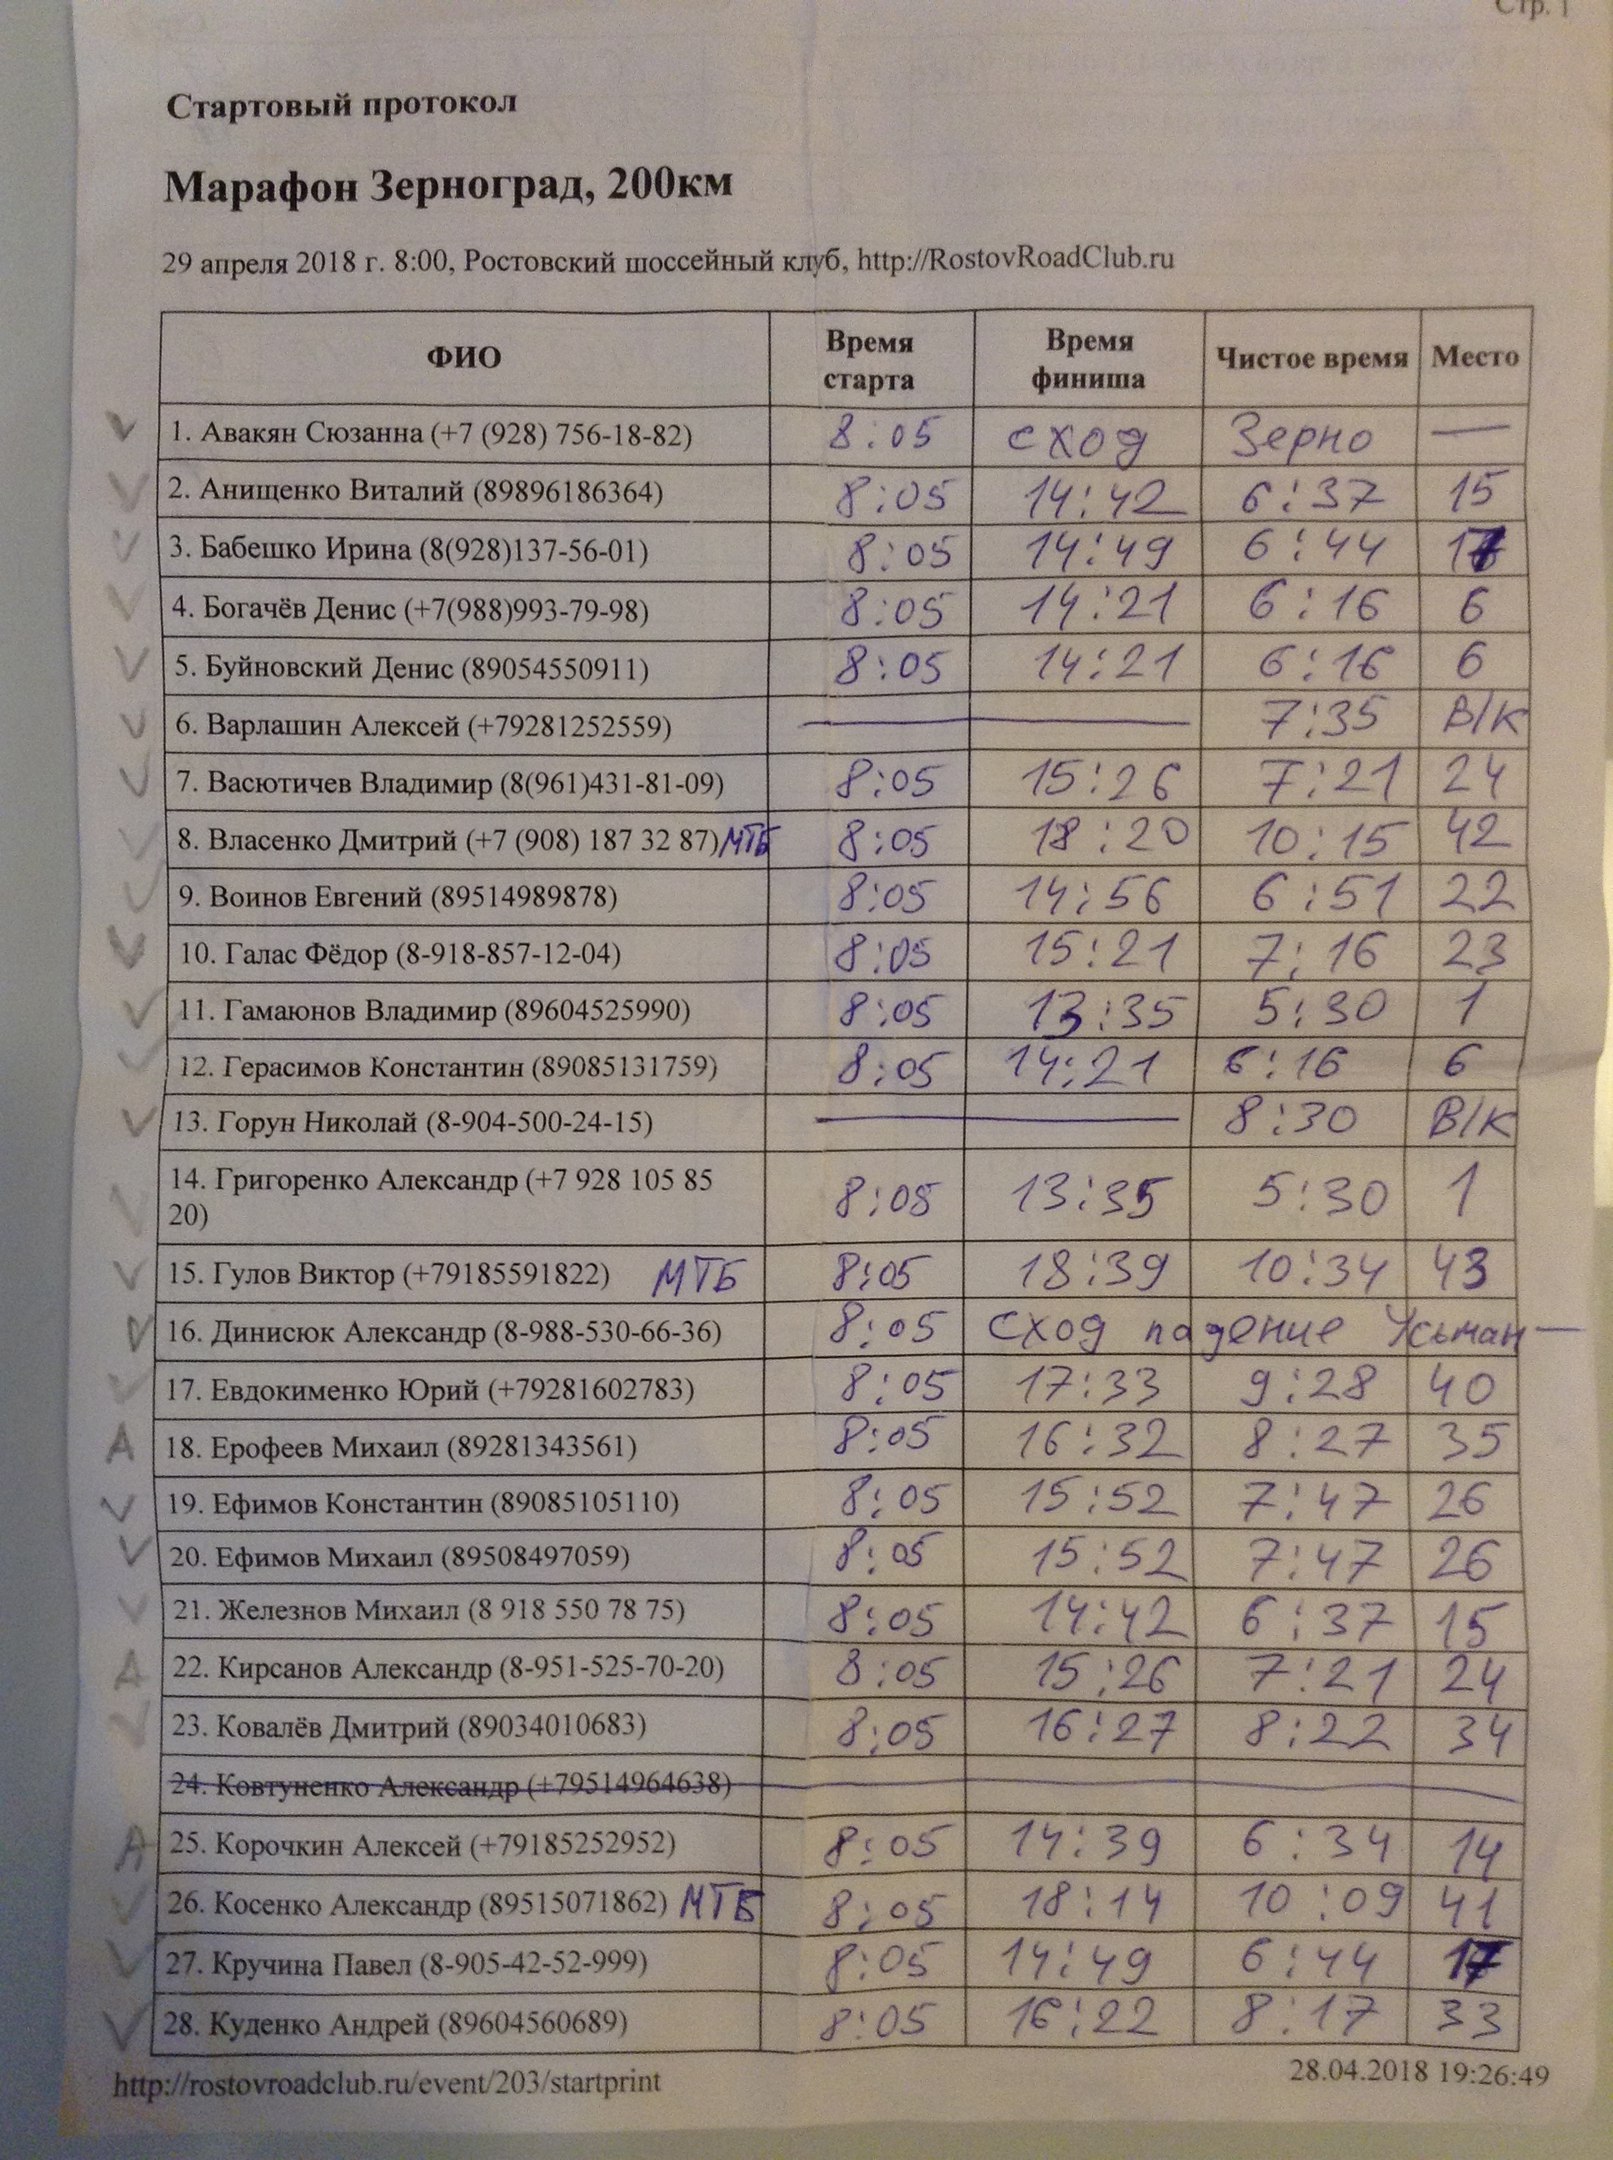 Стр. 1
Стартовый протокол
Марафон Зерноград, 200км
29 апреля 2018 г. 8:00, Ростовский шоссейный клуб, http://RostovRoadClub.ru
ФИО Время старта Время финиша Чистое время Место
1. Авакян Сюзанна (+7 (928) 756-18-82) 8:05 сход Зерно —
2. Анищенко Виталий (89896186364) 8:05 14:42 6:37 15
3. Бабешко Ирина (8(928)137-56-01) 8:05 14:49 6:44 17
4. Богачёв Денис (+7(988)993-79-98) 8:05 14:21 6:16 6
5. Буйновский Денис (89054550911) 8:05 14:21 6:16 6
6. Варлашин Алексей (+79281252559) — 7:35 В/К
7. Васютичев Владимир (8(961)431-81-09) 8:05 15:26 7:21 24
8. Власенко Дмитрий (+7 (908) 187 32 87) МТБ 8:05 18:20 10:15 42
9. Воинов Евгений (89514989878) 8:05 14:56 6:51 22
10. Галас Фёдор (8-918-857-12-04) 8:05 15:21 7:16 23
11. Гамаюнов Владимир (89604525990) 8:05 13:35 5:30 1
12. Герасимов Константин (89085131759) 8:05 14:21 6:16 6
13. Горун Николай (8-904-500-24-15) — 8:30 В/К
14. Григоренко Александр (+7 928 105 85
20) 8:05 13:35 5:30 1
15. Гулов Виктор (+79185591822) МТБ 8:05 18:39 10:34 43
16. Динисюк Александр (8-988-530-66-36) 8:05 сход падение Усьман —
17. Евдокименко Юрий (+79281602783) 8:05 17:33 9:28 40
А 18. Ерофеев Михаил (89281343561) 8:05 16:32 8:27 35
19. Ефимов Константин (89085105110) 8:05 15:52 7:47 26
20. Ефимов Михаил (89508497059) 8:05 15:52 7:47 26
21. Железнов Михаил (8 918 550 78 75) 8:05 14:42 6:37 15
А 22. Кирсанов Александр (8-951-525-70-20) 8:05 15:26 7:21 24
23. Ковалёв Дмитрий (89034010683) 8:05 16:27 8:22 34
24. Ковтуненко Александр (+79514964638)
А 25. Корочкин Алексей (+79185252952) 8:05 14:39 6:34 14
26. Косенко Александр (89515071862) МТБ 8:05 18:14 10:09 41
27. Кручина Павел (8-905-42-52-999) 8:05 14:49 6:44 17
28. Куденко Андрей (89604560689) 8:05 16:22 8:17 33
http://rostovroadclub.ru/event/203/startprint 28.04.2018 19:26:49